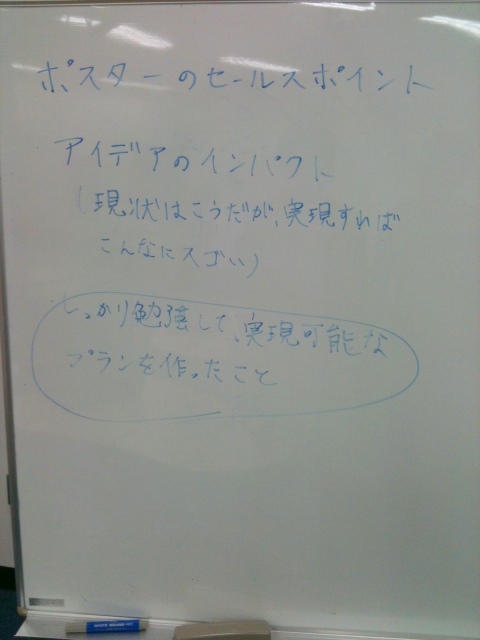 ポスターのセールスポイント
アイデアのインパクト
(現状はこうだが、実現すれば
こんなにスゴい)
しっかり勉強して、実現可能な
プランを作ったこと